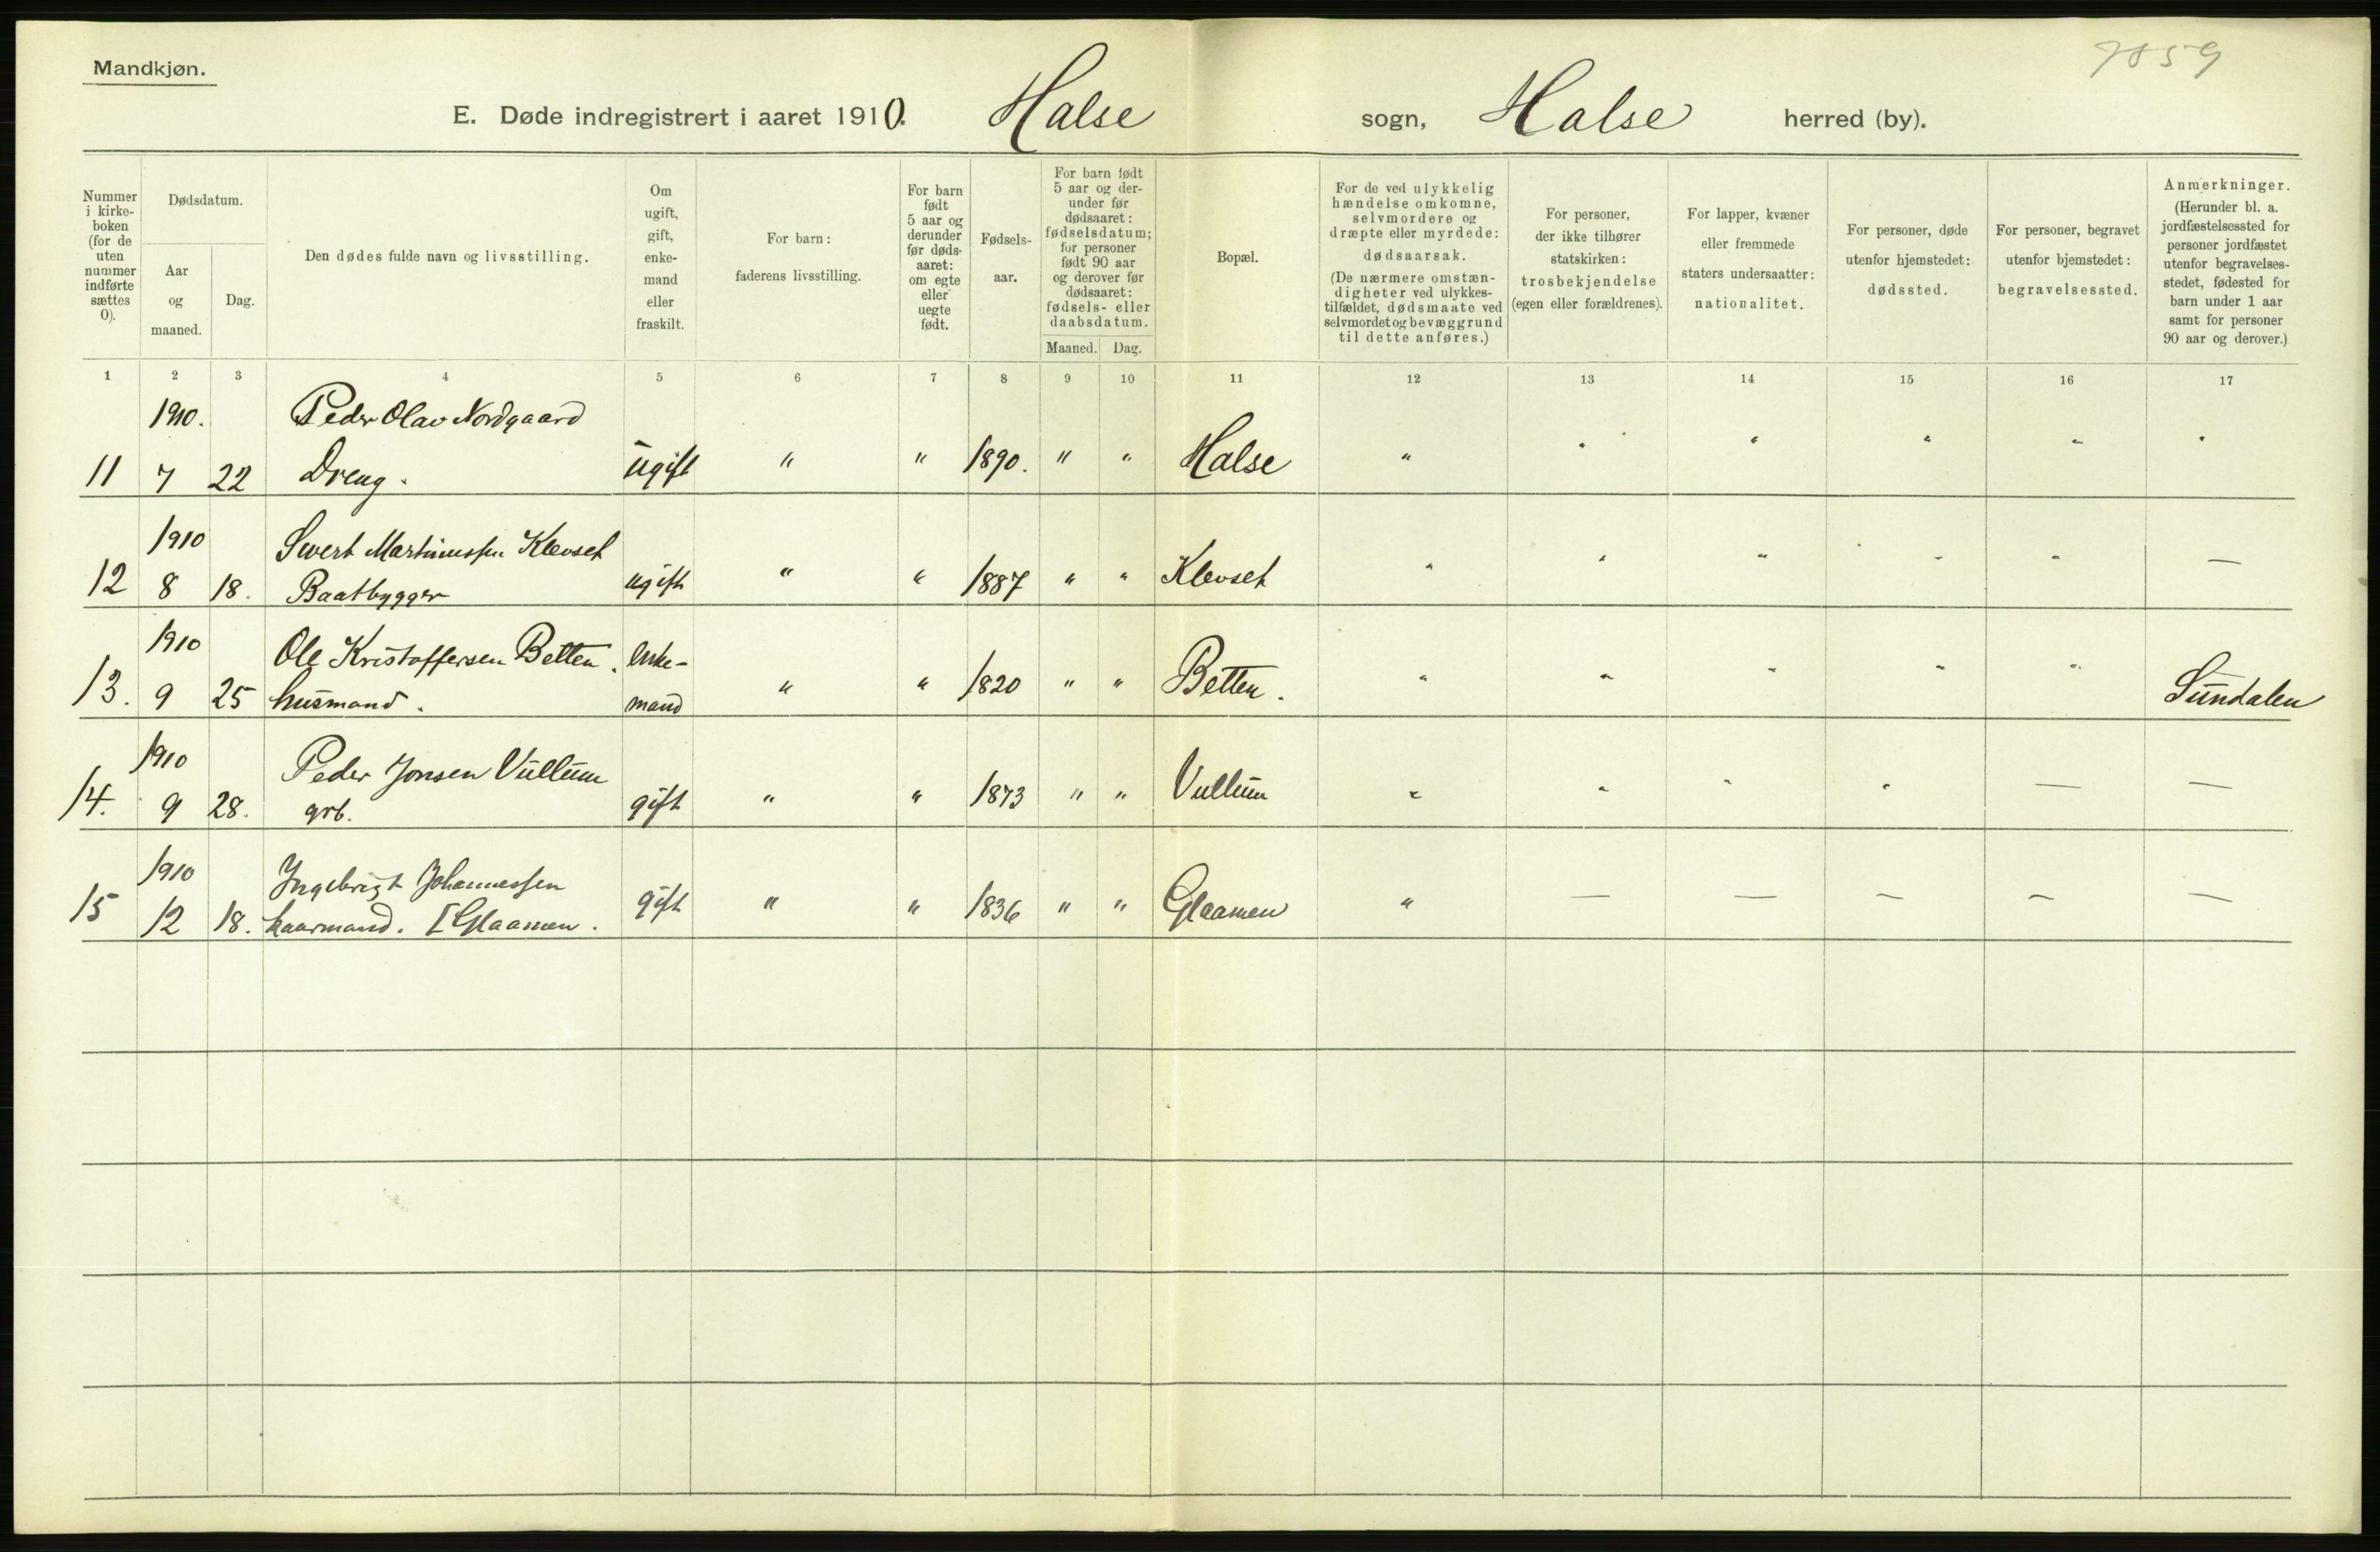 Mandkjøn.
7859
E. Døde indregistrert i aaret 1910. Halse sogn, Halse herred (by).
Nummer i kirke- boken (for de uten nummer indførte sættes 0).
Dødsdatum.
Aar og maaned.
Dag.
Den dødes fulde navn og livsstilling.
Om ugift, gift, enke- mand eller fraskilt.
For barn: faderens livsstilling.
For barn født 5 aar og derunder før døds- aaret: om egte eller uegte født.
Fødsels- aar.
For barn født 5 aar og der- under før dødsaaret: fødselsdatum; for personer født 90 aar og derover før dødsaaret: fødsels- eller daabsdatum.
Maaned. Dag.
Bopæl.
For de ved ulykkelig hændelse omkomne, selvmordere og dræpte eller myrdede: dødsaarsak. (De nærmere omstæn- digheter ved ulykkes- tilfældet, dødsmaate ved selvmordet og bevæggrund til dette anføres.)
For personer, der ikke tilhører statskirken: trosbekjendelse (egen eller forældrenes).
For lapper, kvæner eller fremmede staters undersaatter: nationalitet.
For personer, døde utenfor hjemstedet: dødssted.
For personer, begravet utenfor bjemstedet: begravelsessted.
Anmerkninger. (Herunder bl. a. jordfæstelsessted for personer jordfæstet utenfor begravelses- stedet, fødested for barn under 1 aar samt for personer 90 aar og derover.)
1 2 3 4 5 6 7 8 9 10 11 12 13 14 15 16 17
1910. Peder Olav Nordgaard
11 7 22 Dreng. ugift " " 1890. " " Halse " " " " " "
1910 Sivert Martinussen Klevset
12 8 18. Baatbygger ugift " " 1887 " " Klevset " " " " " —
1910 Ole Kristoffersen Betten. Enke-
13. 9 25 husmand. mand " " 1820 " " Betten. " " " " " Sundalen
1910 Peder Jonsen Vullum
14. 9 28. grb. gift " " 1873 " " Vullum " " " " — —
1910 Ingebrigt Johannessen
15 12 18. kaarmand. [Glaamen. gift " " 1836 " " Glaamen " — — — — —